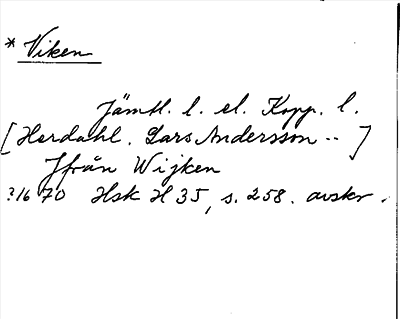 * Viken
Jämtl. l. el. Kopp. l.
[Herdahl. Lars Andersson --]
Jfrån Wijken
?1670 Hsk H 35, s. 258. avskr.